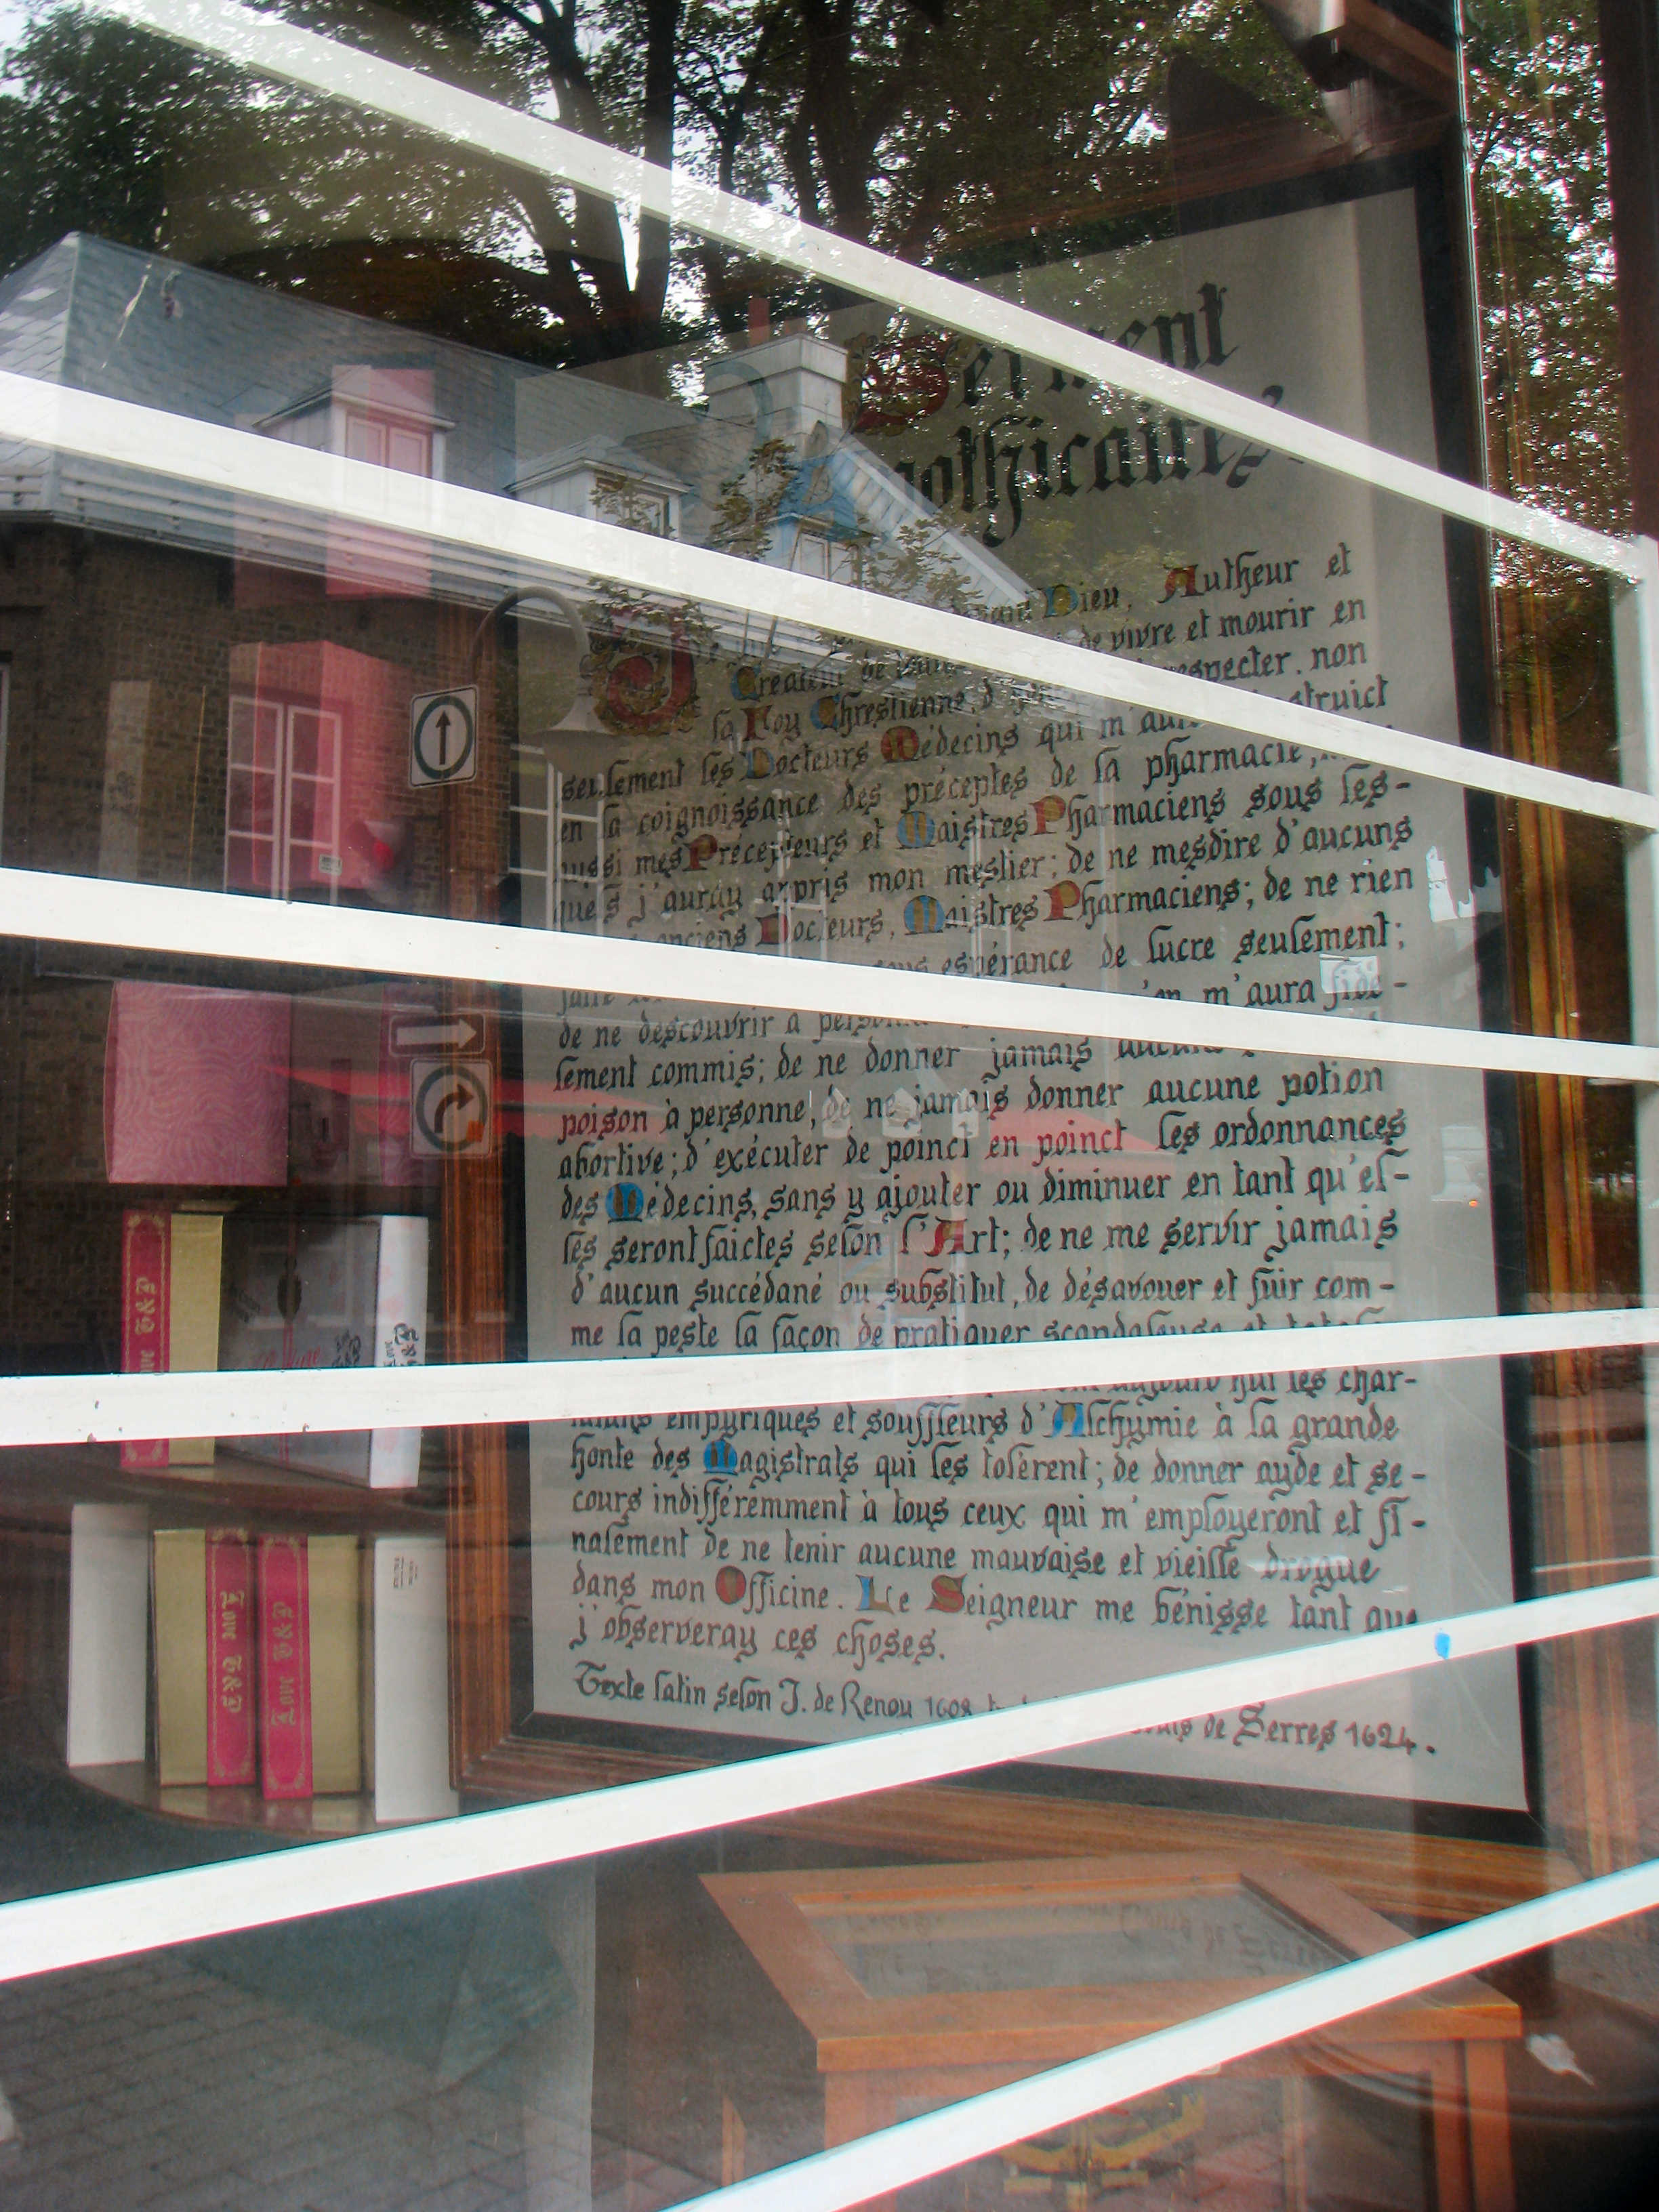 Serment
Apothicaires
Dieu, Autheur et
Createur de de vivre et mourir en
la Foy Chrestienne, respecter, non
seulement les Docteurs Médecins qui struict
en la coignoissance des préceptes de la pharmacie,
aussi mes Précepteurs et Maistres Pharmaciens sous les-
quels j'auray appris mon mestier; de ne mesdire d'aucuns
anciens Docteurs, Maistres Pharmaciens; de ne rien
espérance de lucre seulement;
de ne descouvrir à m'aura fide-
lement commis; de ne donner jamais
poison à personne, de ne jamais donner aucune potion
abortive; d'exécuter de poinct en poinct les ordonnances
des Médecins, sans y ajouter ou diminuer en tant qu'el-
les seront faictes selon l'Art; de ne me servir jamais
d'aucun succédané ou substitut, de désavouer et fuir com-
me la peste la façon de pratiquer scandaleuse et
les char-
empyriques et souffleurs d'Alchymie à la grande
honte des Magistrats qui les tolèrent; de donner ayde et se-
cours indifféremment à tous ceux qui m'employeront et fi-
nalement de ne tenir aucune mauvaise et vieille drogue
dans mon Officine. Le Seigneur me bénisse tant que
j'observeray ces choses.
Texte latin selon J. de Renou 1608 de Serres 1624.
Love B&P
Love B&P